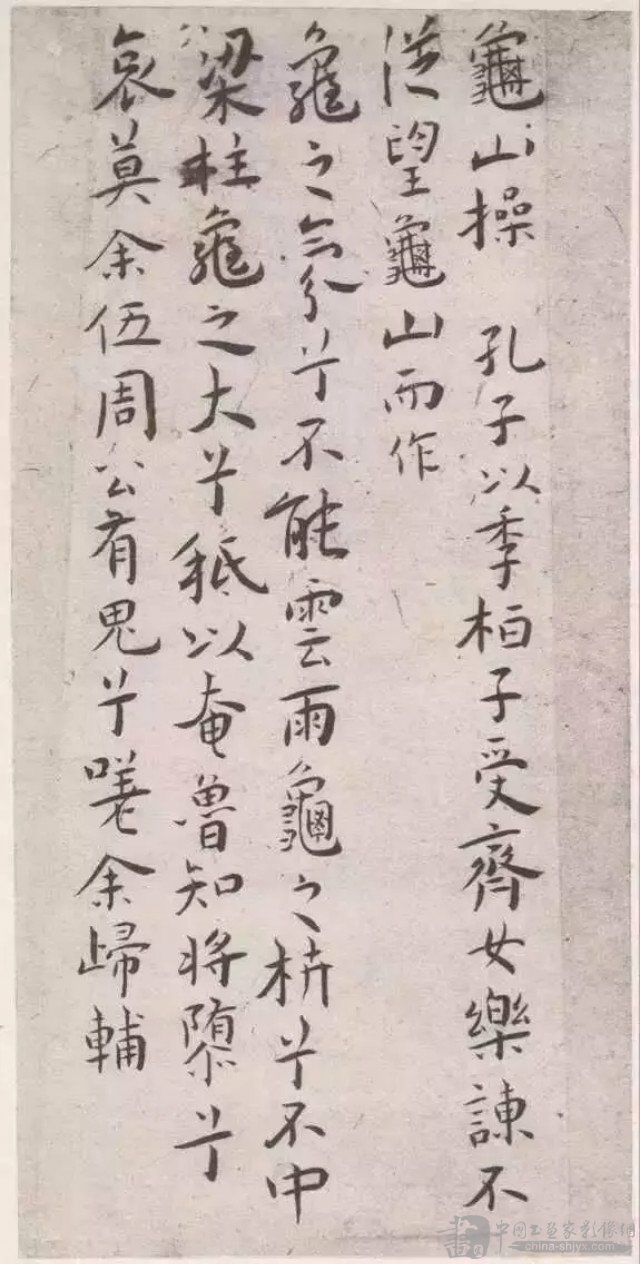 龜山操 孔子以季桓子受齊女樂諫不
從望龜山而作
龜之氛兮不能雲雨龜之枿兮不中
梁柱龜之大兮秪以奄魯知將隳兮
哀莫余伍周公有鬼兮嗟余歸輔
china-shjyx.com